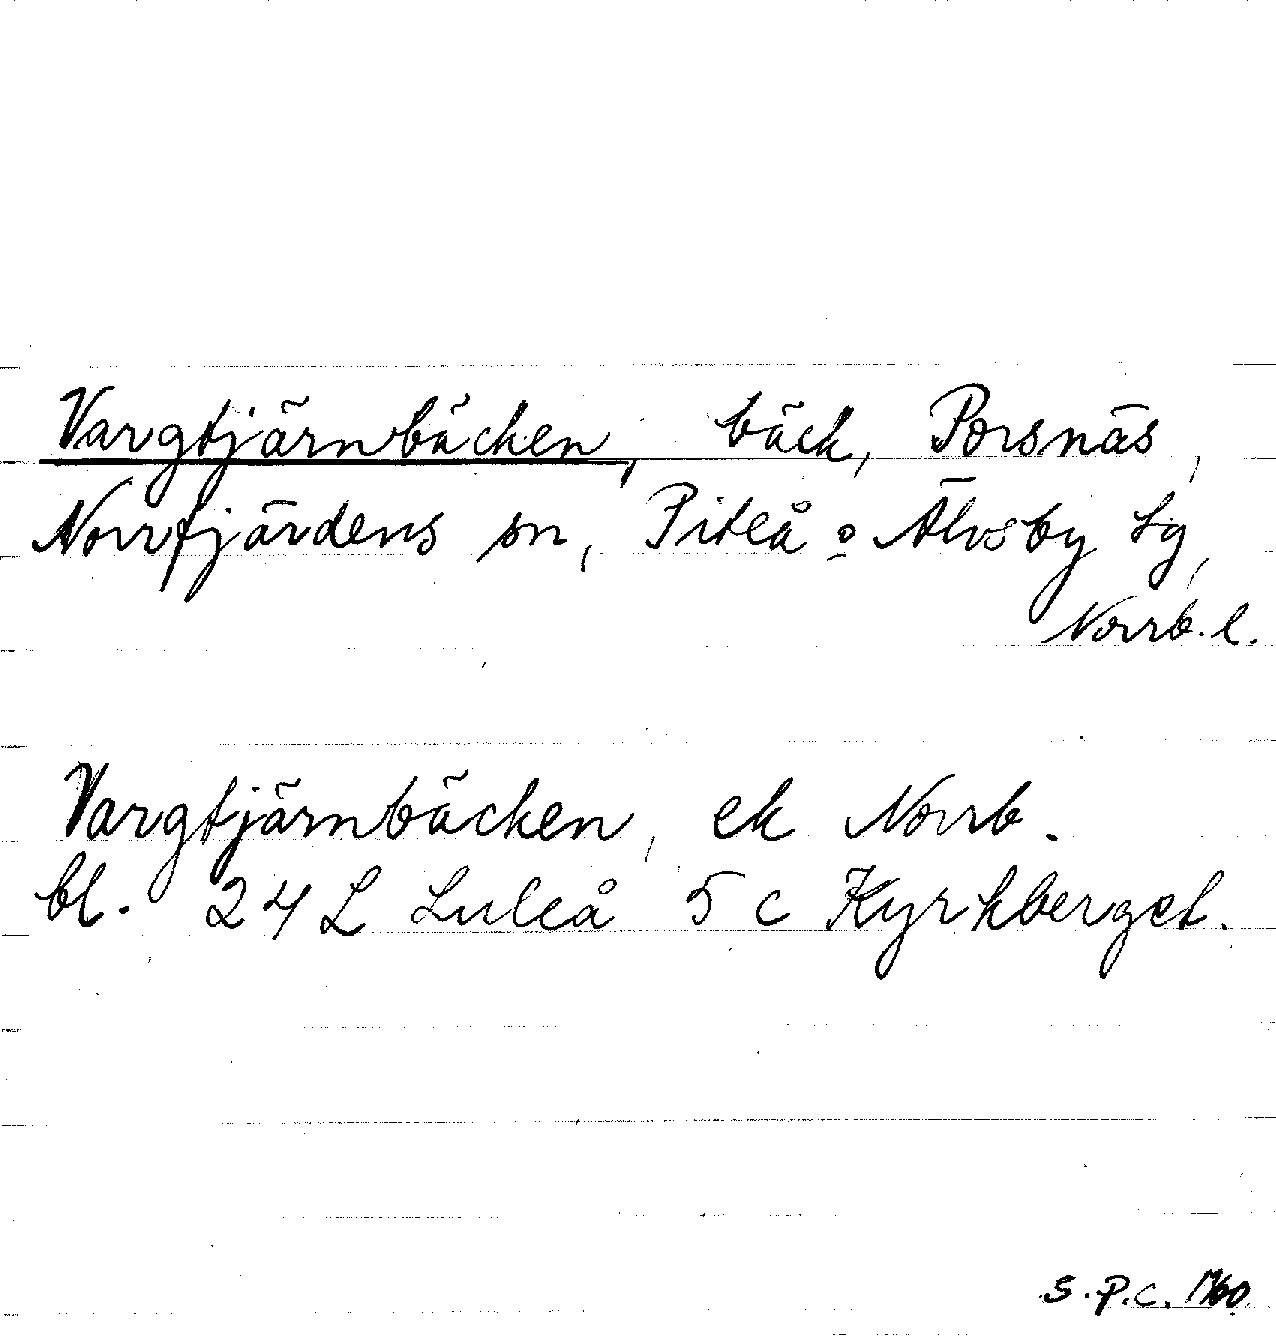 Vargtjärnbäcken, bäck, Porsnäs,
Norrfjärdens sn, Piteå o Älvsby tg,
Norrb. l.
Vargtjärnbäcken, ek Norrb.
bl. 24 L Luleå 5 c Kyrkberget.
S.P.C. 1960